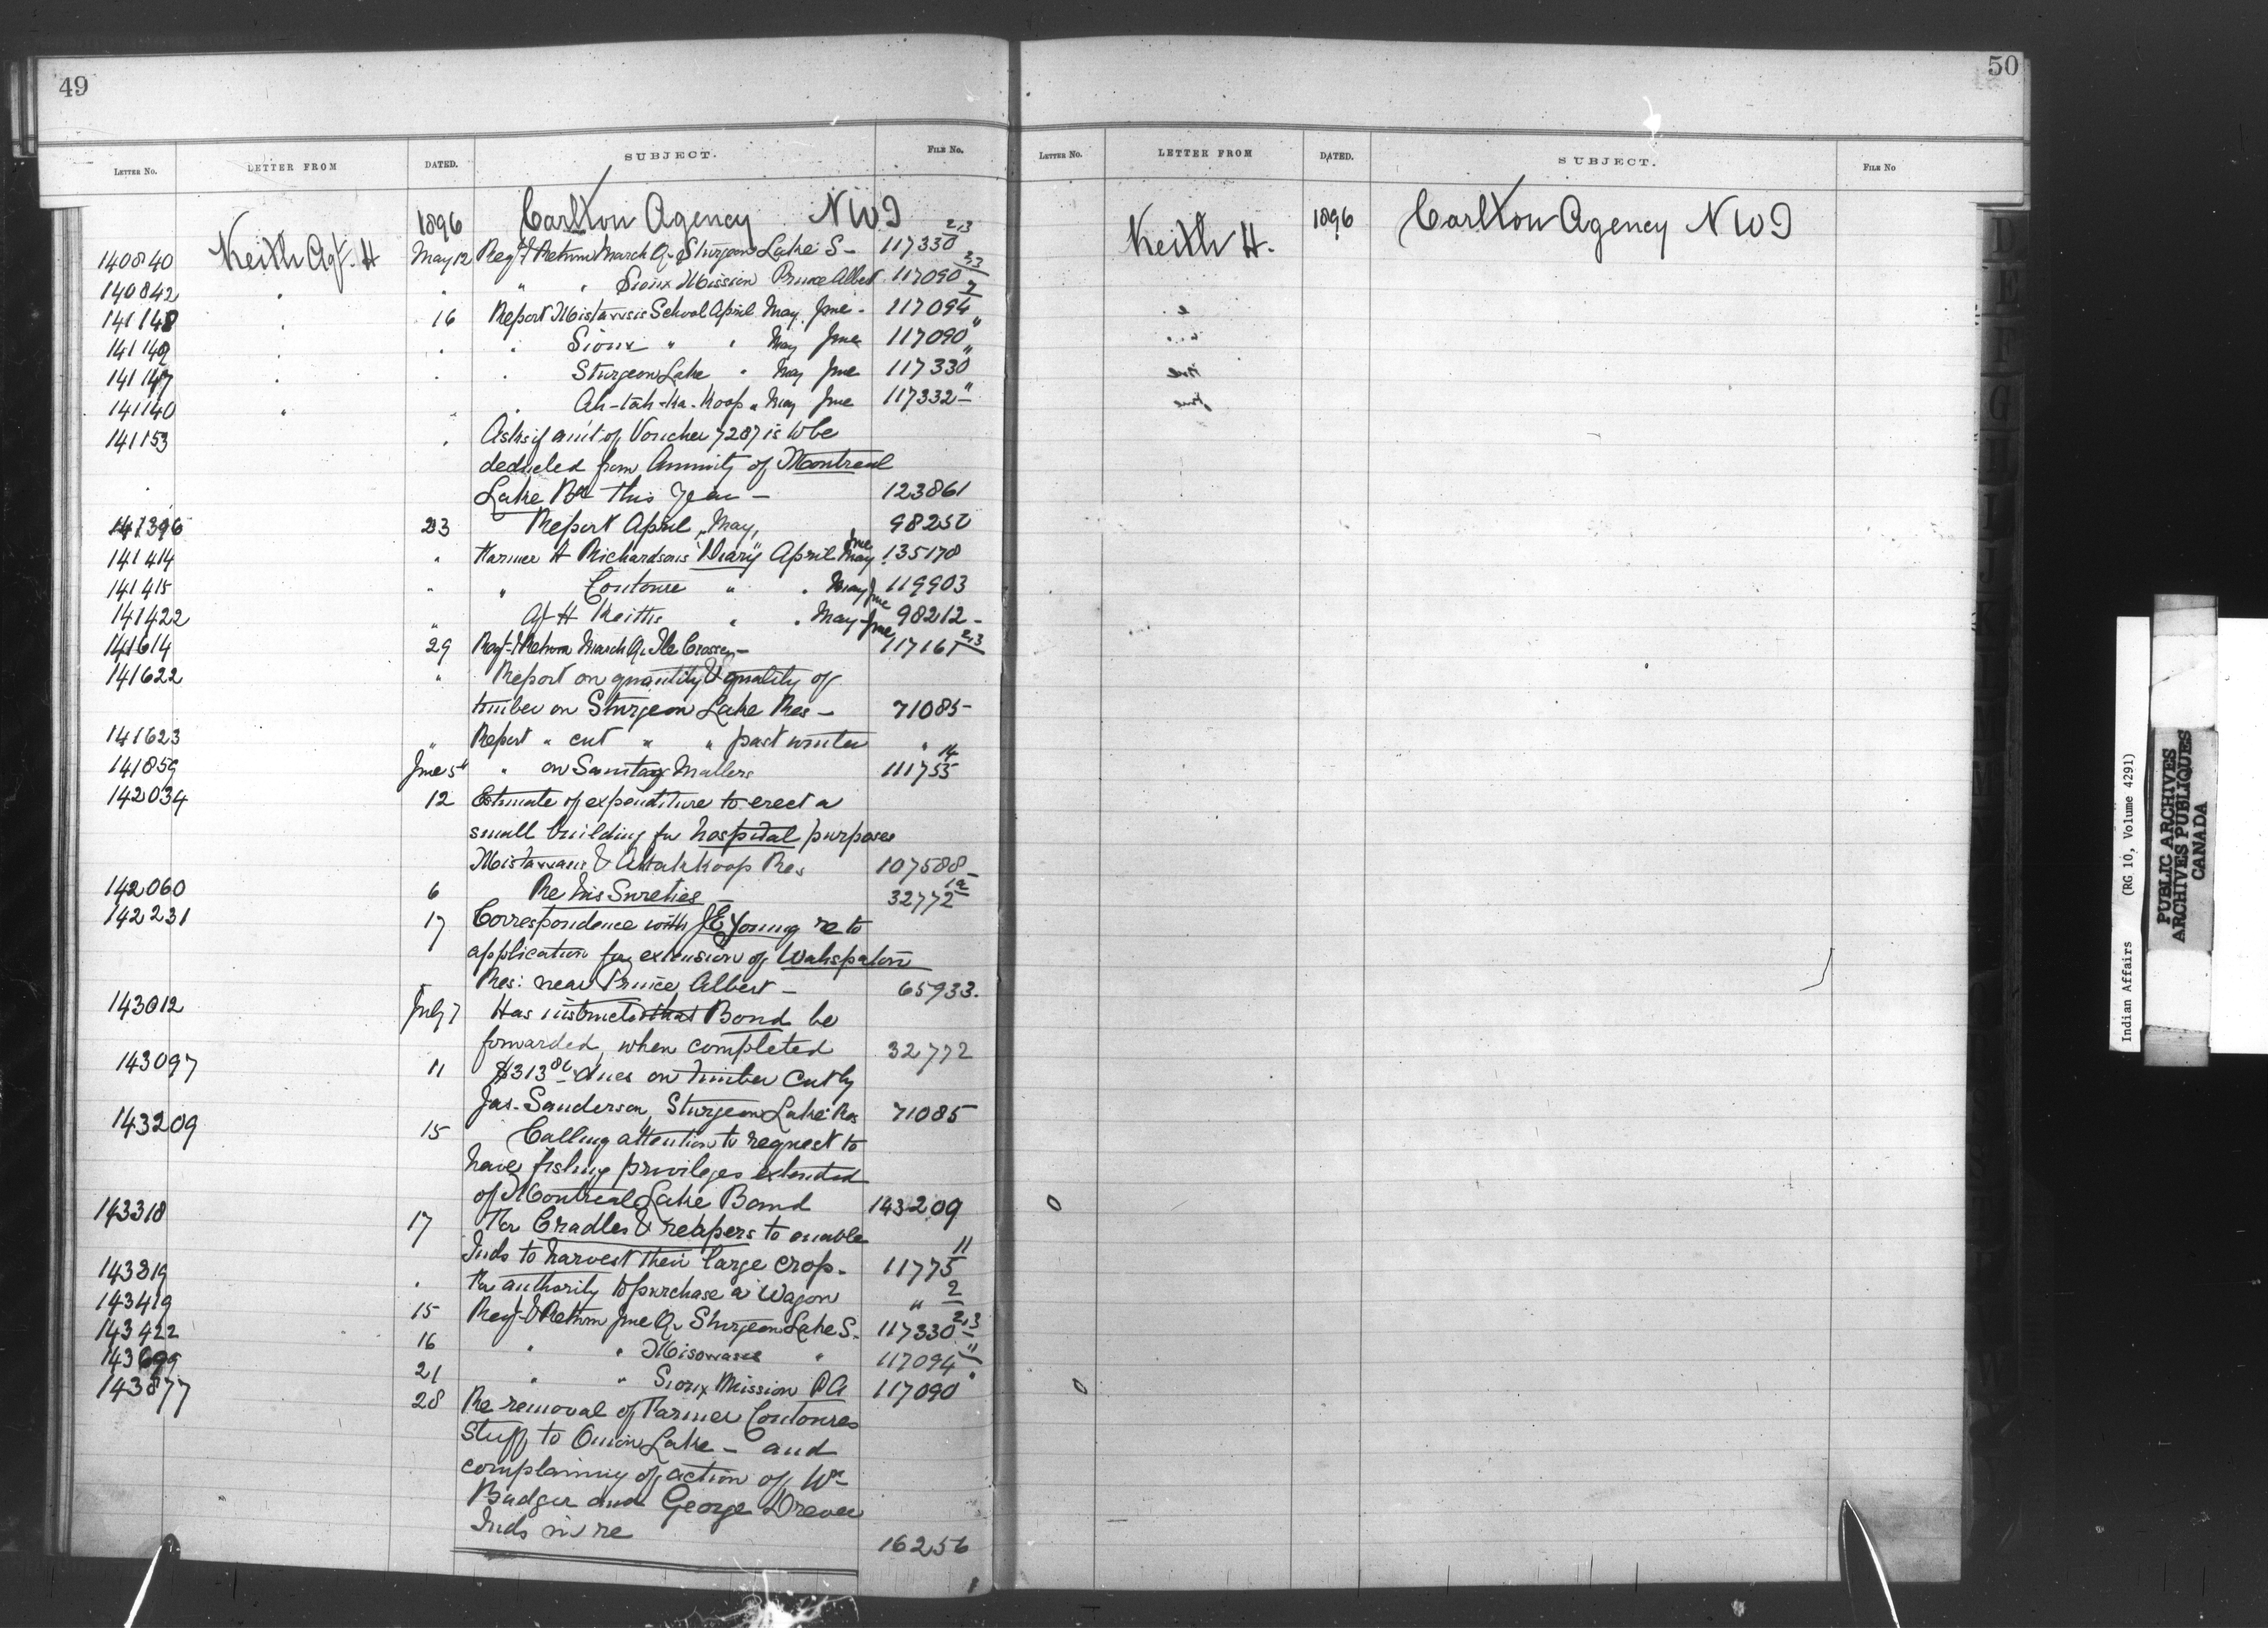 49
LETTER NO. LETTER FROM DATED. SUBJECT. FILE NO.
1896 Carlton Agency NWT
140840 Keith Agt. H May 12 Reqt & Return March Qr Sturgeon Lake S - 117330 2,3
140842 " " " " Sioux Mission Prince Albert 117090 2,3
141148 " 16 Report Mistawasis School April May June - 117094 2
141149 " " " Sioux " " May June 117090 "
141147 " " " Sturgeon Lake " May June 117330 "
141140 " " " Ah-tah-ka-koop " May June 117332 "
141153 " Asks if amt of Voucher 7287 is to be
deducted from Annuity of Montreal
Lake Bd this year - 123861
141396 23 Report April, May, June 98252
141414 " Farmer A Richardsons Diary April May 135178
141415 " " Coutoure " " May June 119903
141422 " Agt H Keiths " " May June 98212 -
141614 29 Reqt & Return March Qr Ile Crosse - 117161 2,3
141622 " Report on quantity & quality of
timber on Sturgeon Lake Res - 71085 -
141623 " Report " cut " " past winter "
141859 June 5th " on Sanitary Matters 111755 14
142034 12 Estimate of expenditure to erect a
small building for hospital purposes
Mistawasis & Attahkoop Res 107588 -
142060 6 Re his Sureties 32772
142231 17 Correspondence with JE Young re to
application for extension of Wahspaton
Res: near Prince Albert - 65933.
143012 July 7 Has instructed that Bond be
forwarded when completed 32772
143097 11 $313 86 dues on timber cut by
Jas. Sanderson, Sturgeon Lake Res 71085
143209 15 Calling attention to request to
have fishing privileges extended
of Montreal Lake Band 143209
143318 17 For Cradles & reapers to enable
Inds to harvest their large crop - 11775 11
143319 " For authority to purchase a Wagon " 2
143419 15 Reqt & Return June Qr Sturgeon Lake S. 117330 2,3
143422 16 " " Misowasis " 117094 "
143699 21 " " Sioux Mission P.A 117090 "
143877 28 Re removal of Farmer Coutoures
stuff to Onion Lake - and
complaining of action of Wm
Badger and George Drever
Inds in re 16256
50
LETTER NO. LETTER FROM DATED. SUBJECT. FILE NO
Keith H. 1896 Carlton Agency NWT
Indian Affairs (RG 10, Volume 4291)
PUBLIC ARCHIVES
ARCHIVES PUBLIQUES
CANADA